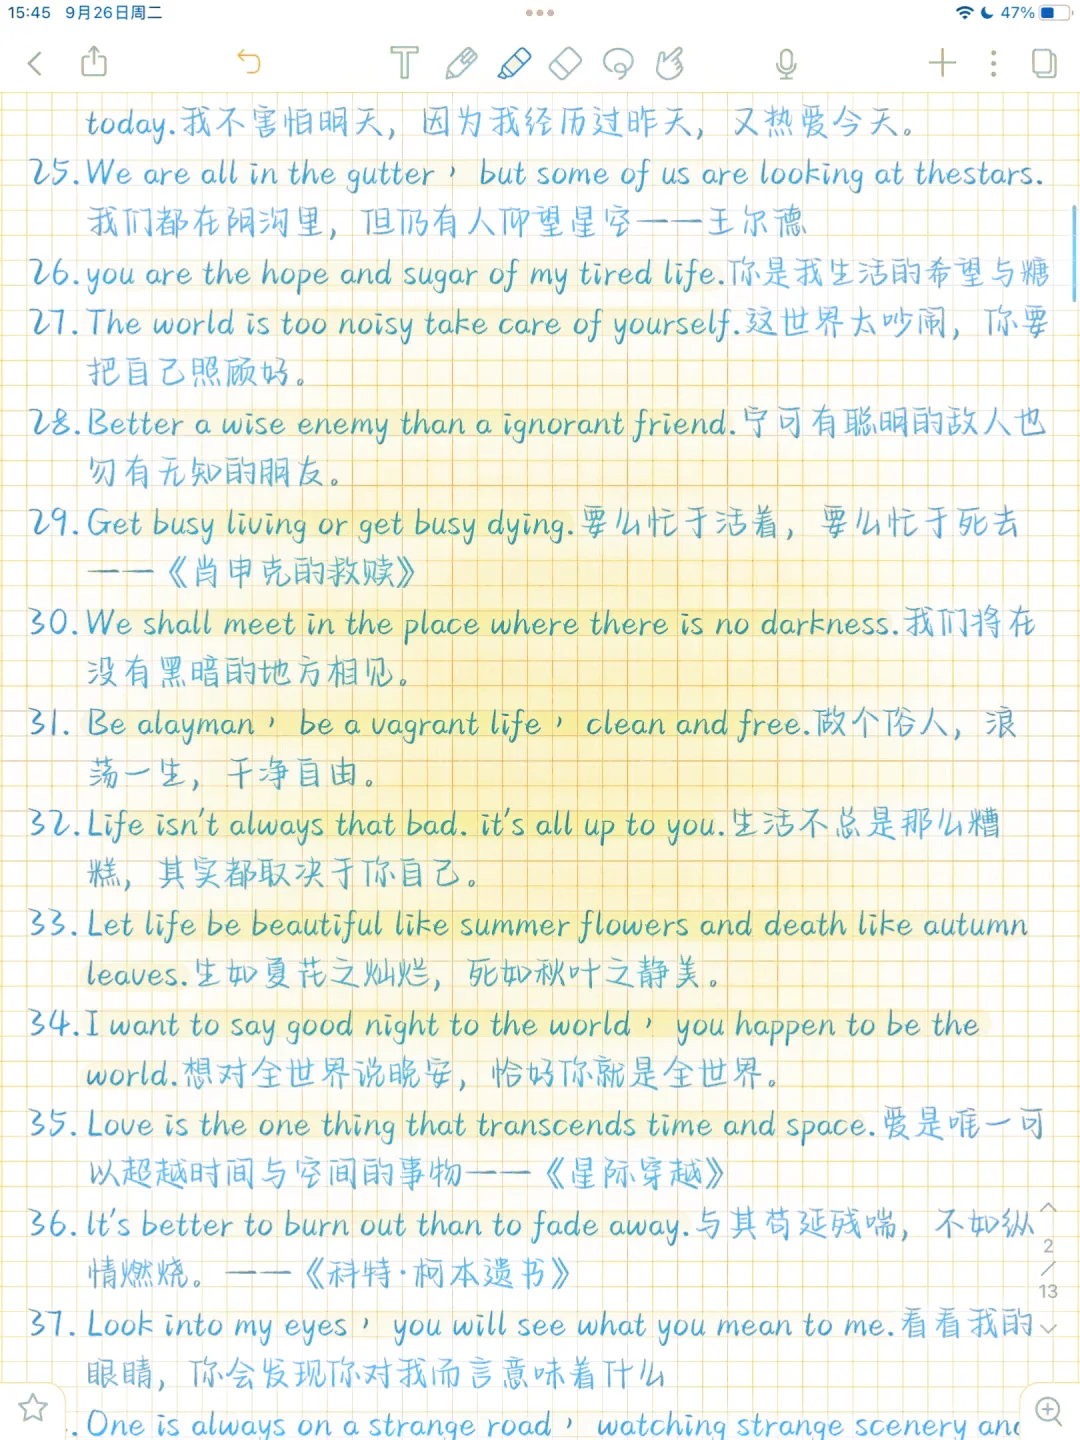 15:45 9月26日周二
47%
today.我不害怕明天，因为我经历过昨天，又热爱今天。
25.We are all in the gutter，but some of us are looking at thestars.
我们都在阴沟里，但仍有人仰望星空——王尔德
26.you are the hope and sugar of my tired life.你是我生活的希望与糖
27.The world is too noisy take care of yourself.这世界太吵闹，你要
把自己照顾好。
28.Better a wise enemy than a ignorant friend.宁可有聪明的敌人也
勿有无知的朋友。
29.Get busy living or get busy dying.要么忙于活着，要么忙于死去
——《肖申克的救赎》
30.We shall meet in the place where there is no darkness.我们将在
没有黑暗的地方相见。
31. Be alayman，be a vagrant life，clean and free.做个俗人，浪
荡一生，干净自由。
32.Life isn't always that bad. it's all up to you.生活不总是那么糟
糕，其实都取决于你自己。
33.Let life be beautiful like summer flowers and death like autumn
leaves.生如夏花之灿烂，死如秋叶之静美。
34.I want to say good night to the world，you happen to be the
world.想对全世界说晚安，恰好你就是全世界。
35.Love is the one thing that transcends time and space.爱是唯一可
以超越时间与空间的事物——《星际穿越》
36.It's better to burn out than to fade away.与其苟延残喘，不如纵
情燃烧。——《科特·柯本遗书》
2/13
37.Look into my eyes，you will see what you mean to me.看看我的
眼睛，你会发现你对我而言意味着什么
.One is always on a strange road，watching strange scenery and